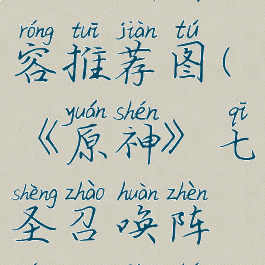 róng tuī jiàn tú
容推荐图(
yuán shén qī
《原神》七
shèng zhào huàn zhèn
圣召唤阵